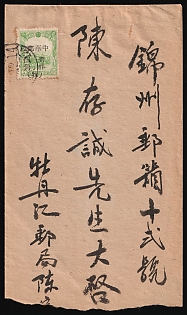 錦州郵箱十弍號
陳存誠先生大啓
牡丹江郵局陳